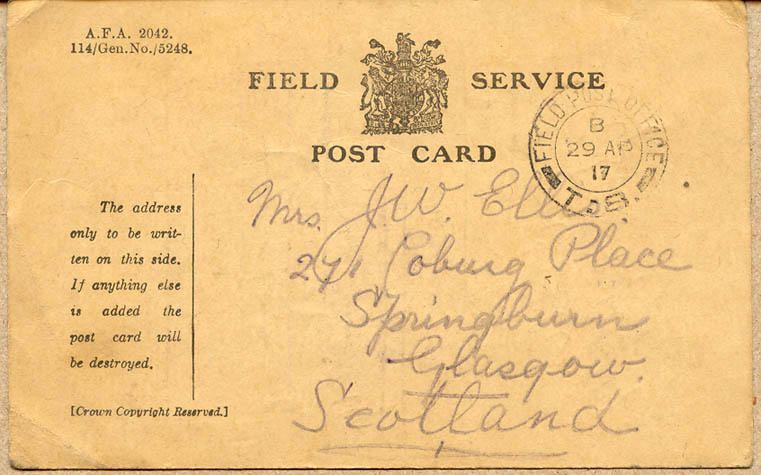 A.F.A. 2042.
114/Gen.No./5248.
FIELD SERVICE
POST CARD
FIELD POST OFFICE
B
29 AP
17
T.S.
The address
only to be writ-
ten on this side.
If anything else
is added the
post card will
be destroyed.
[Crown Copyright Reserved.]
Mrs. J.W. Ellis.
271 Coburg Place
Springburn
Glasgow.
Scotland